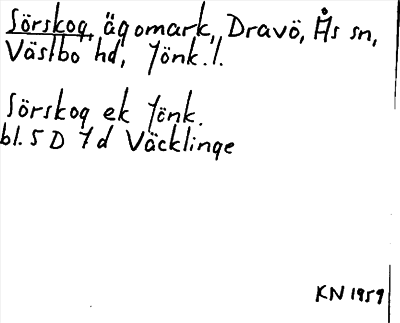 Sörskog, ägomark, Dravö, Ås sn,
Västbo hd, Jönk.l.
Sörskog ek Jönk.
bl. 5 D 7 d Väcklinge
KN 1959